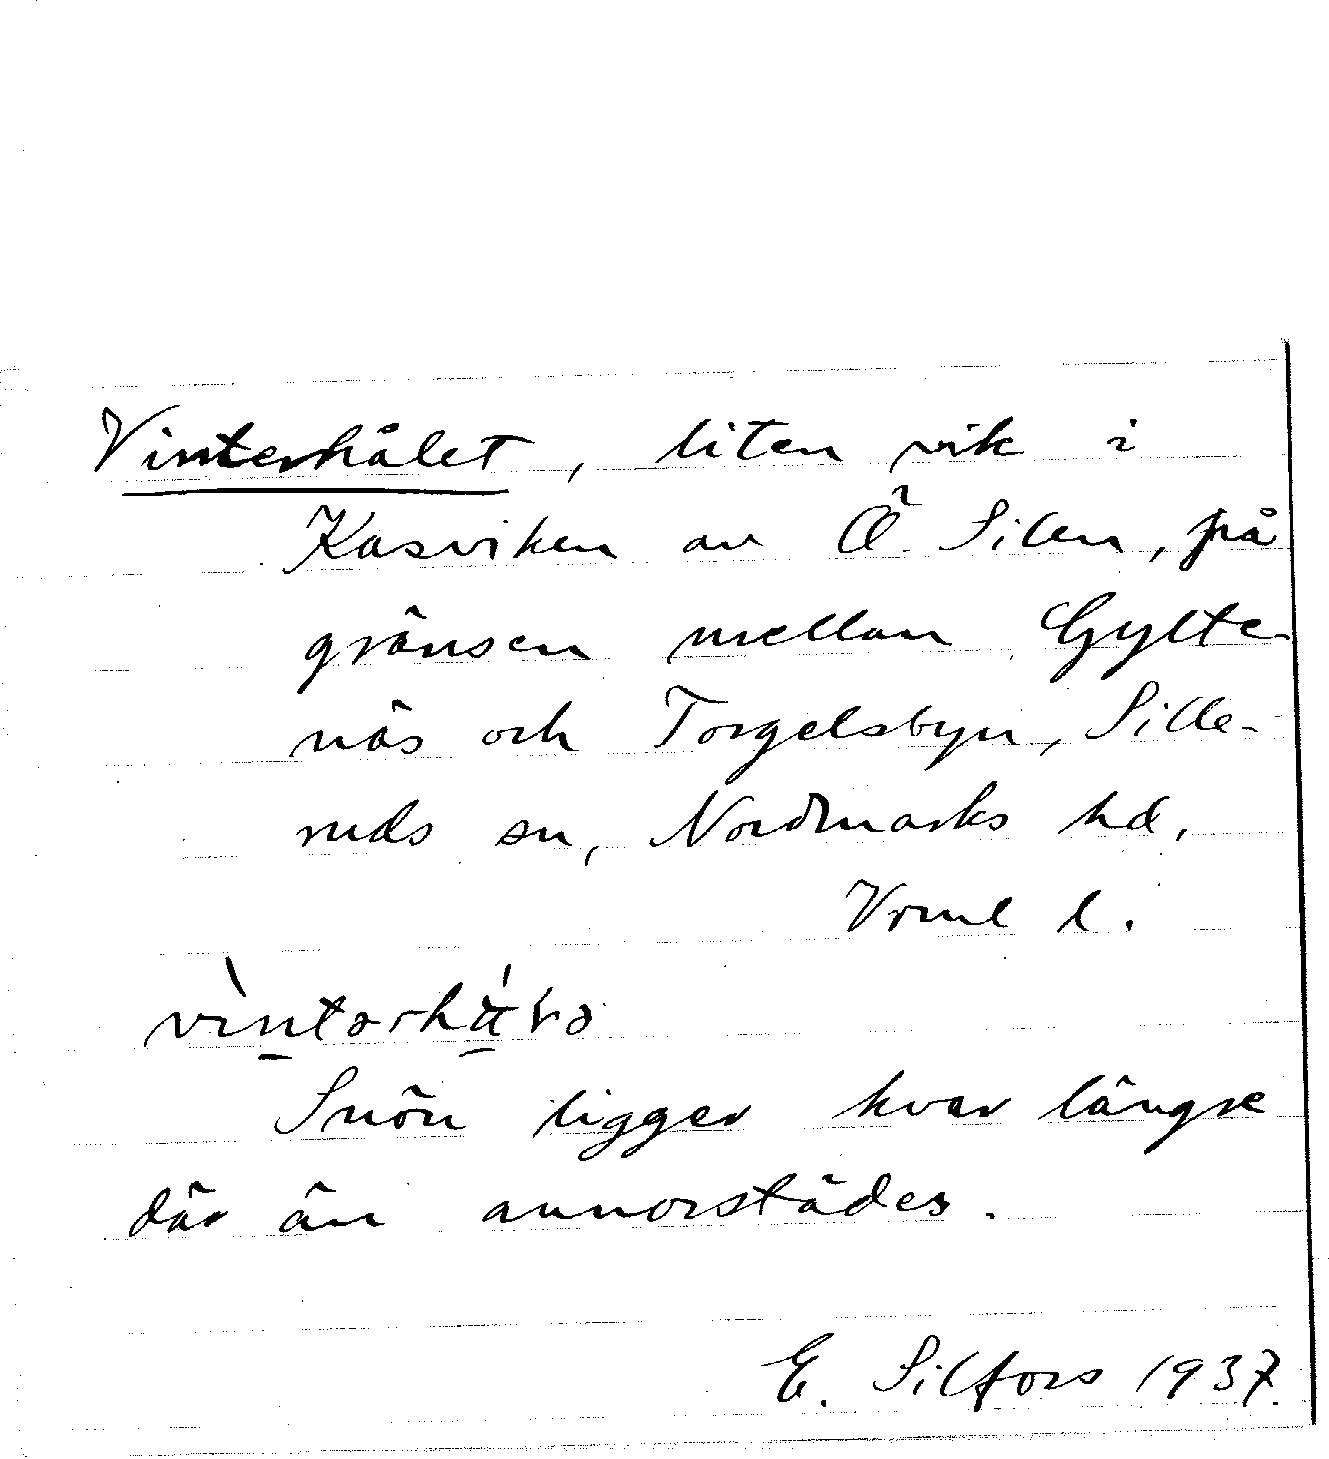 Vinterhålet, liten vik i
Kasviken av Ö. Silen, på
gränsen mellan Gylte-
näs och Torgelsbyn, Sille-
ruds sn, Nordmarks hd,
Vrml l.
Snön ligger kvar längre
där än annorstädes.
E. Silfors 1937.